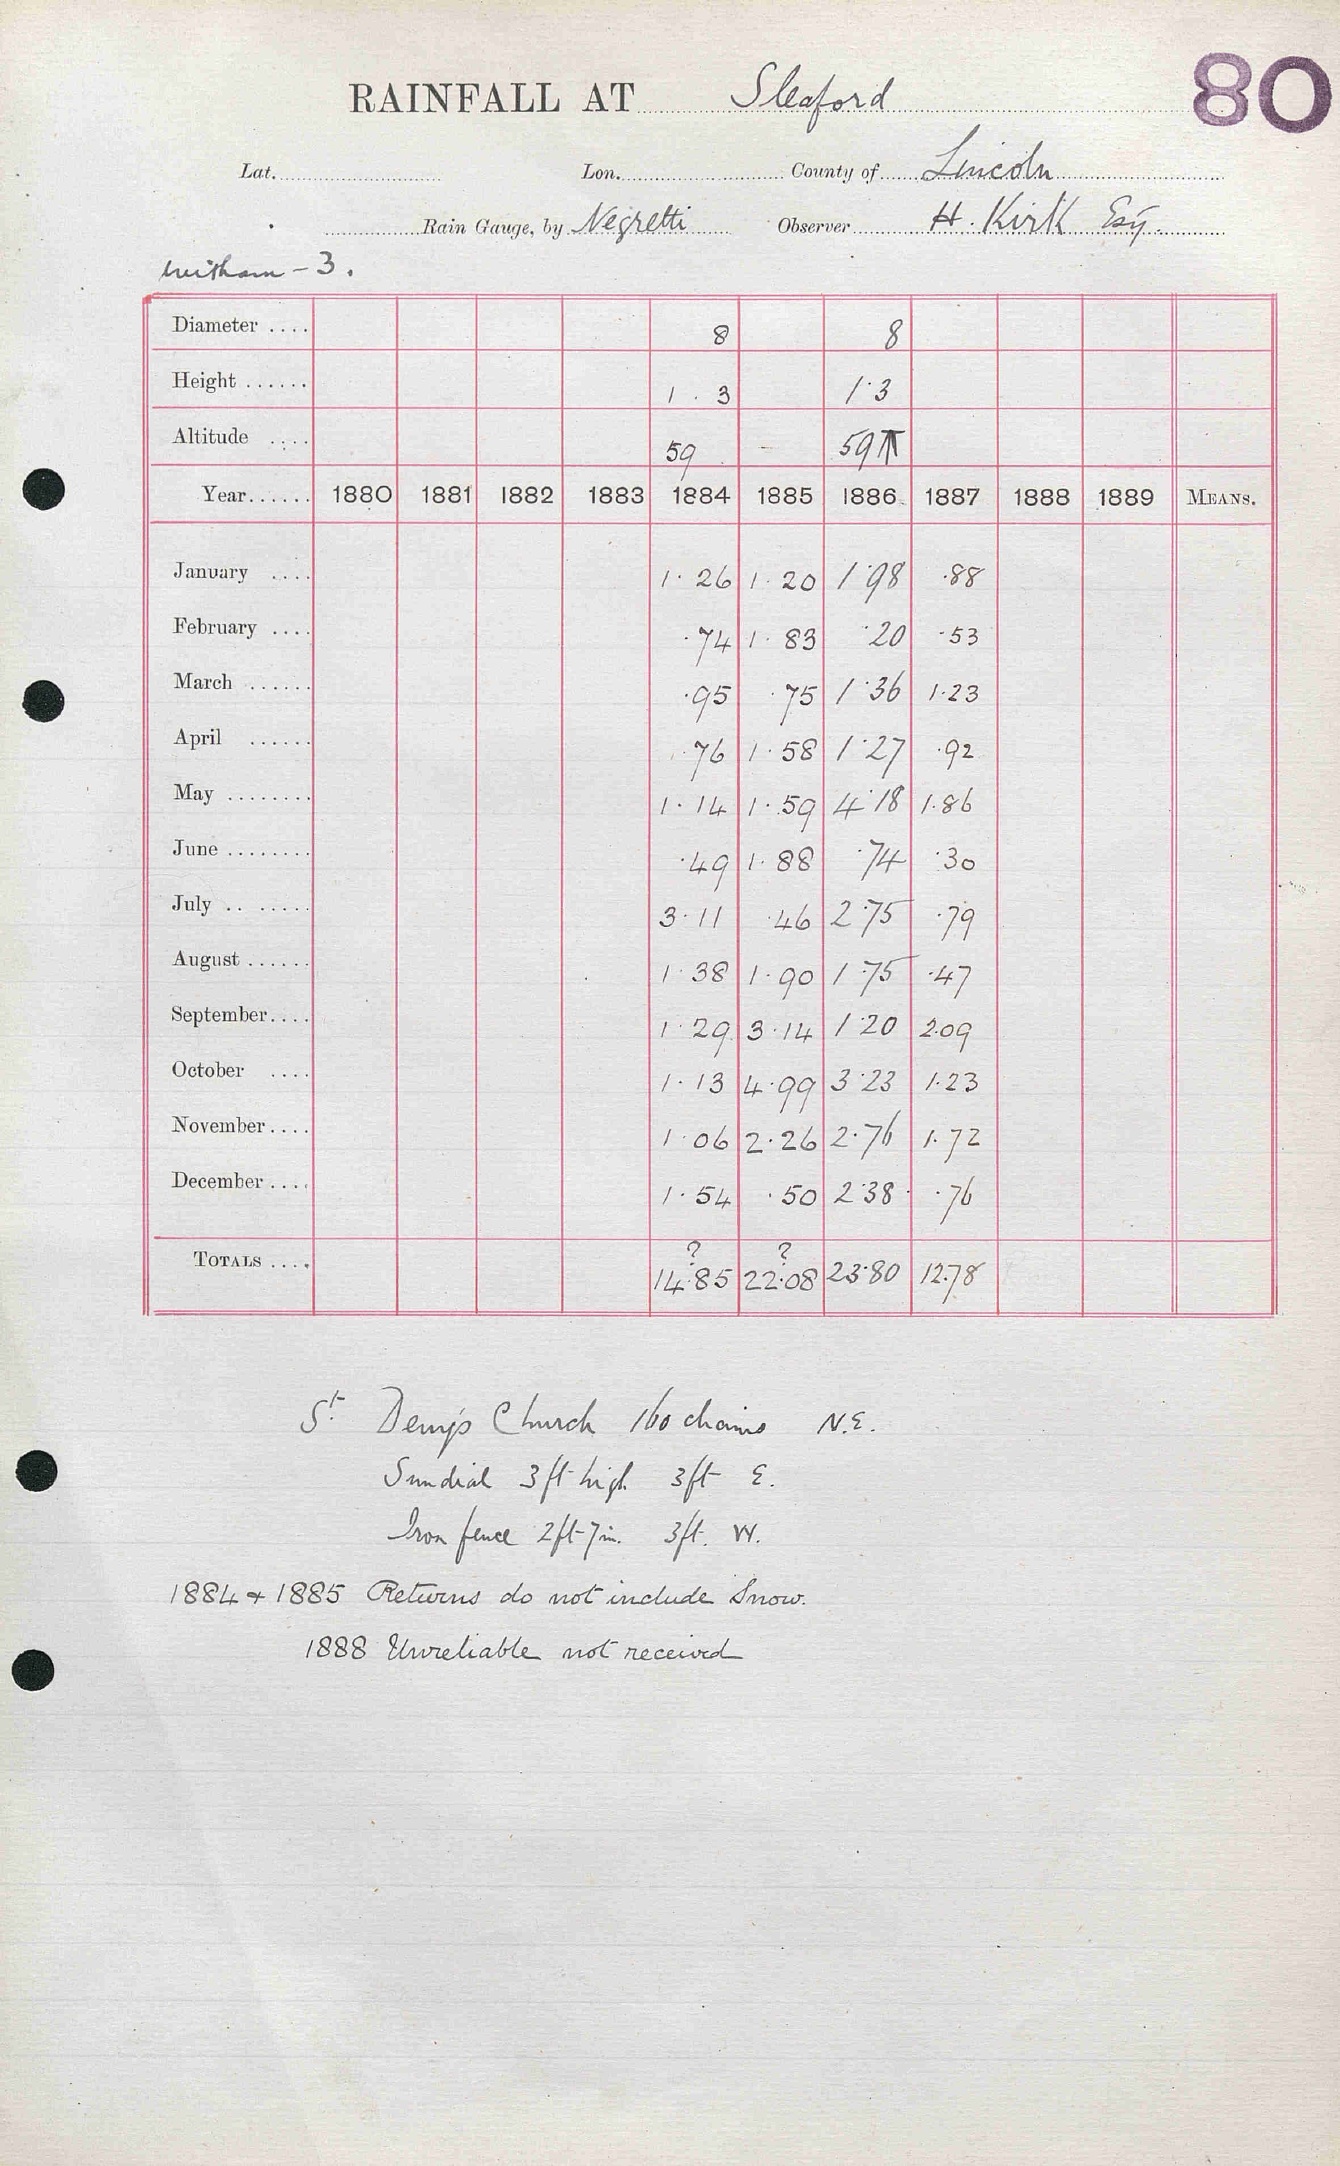 80
RAINFALL AT Sleaford
Lat. Lon. County of Lincoln
Rain Gauge, by Negretti Observer H. Kirk Esq.
Witham - 3.
Diameter .... 8 8
Height ...... 1 . 3 1.3
Altitude .... 59 - 59
Year...... 1880 1881 1882 1883 1884 1885 1886 1887 1888 1889 MEANS.
January .... 1.26 1.20 1.98 .88
February .... .74 1.83 .20 .53
March ...... .95 .75 1.36 1.23
April ...... .76 1.58 1.27 .92
May ........ 1.14 1.59 4.18 1.86
June ........ .49 1.88 .74 .30
July .. ...... 3.11 .46 2.75 .79
August ...... 1.38 1.90 1.75 .47
September.... 1.29 3.14 1.20 2.09
October .... 1.13 4.99 3.23 1.23
November.... 1.06 2.26 2.76 1.72
December.... 1.54 .50 2.38 .76
? ?
TOTALS .... 14.85 22.08 23.80 12.78
St. Deny's Church 160 chains N.E.
Sundial 3ft high 3ft E.
Iron fence 2ft-7in. 3ft. W.
1884 & 1885 Returns do not include Snow.
1888 Unreliable not received